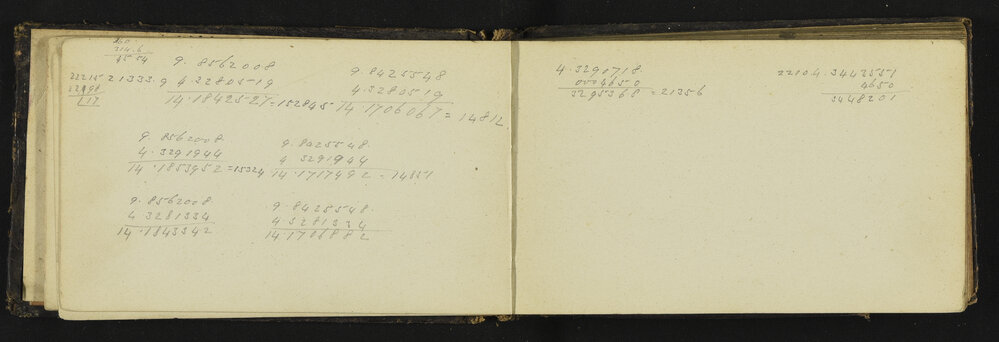 314.6
9.8562008
22215 21333. 9 4.3280519
117
14.1842527=152845
9.8425548
4.3280519
14.1706067=14812
9.8562008
4.3291944
14.1853952=15324
9.8425548
4.3291944
14.1717492=14851
9.8562008
4.3281334
14.1843342
9.8425548.
4.3281334
14.1706882
4.3290718
0004650
3295368=21356
22104.3443551
4650
3448201